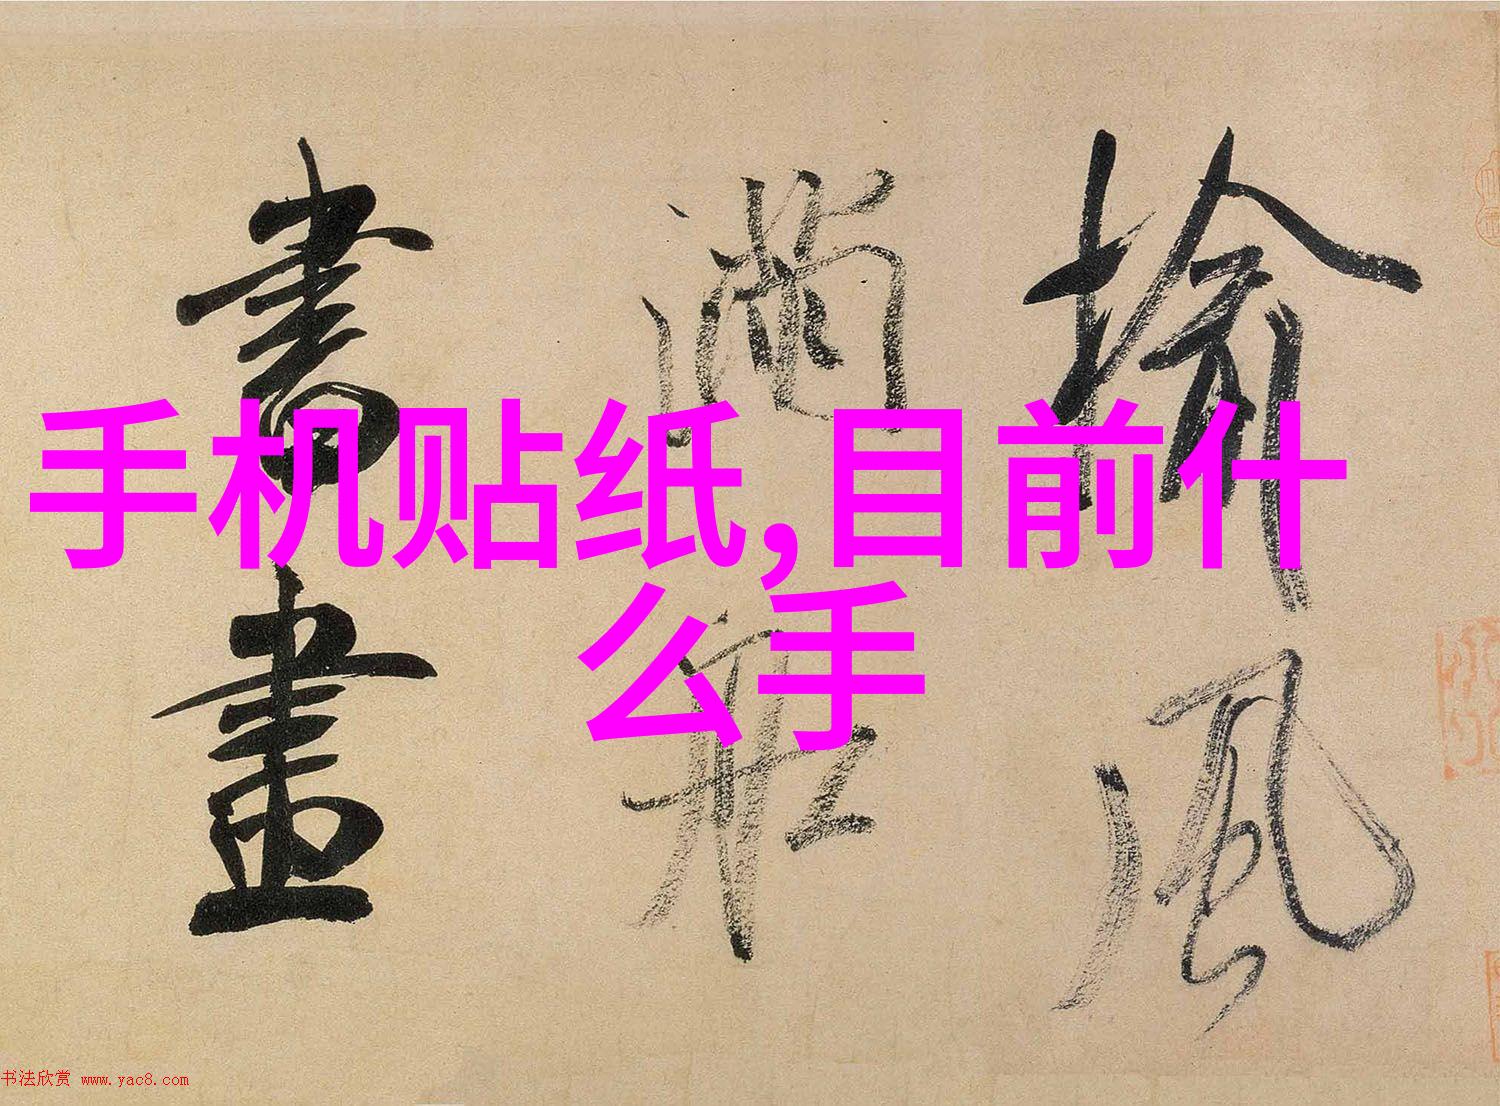 榆風
滿舡
書畫
手机贴纸,目前什
么手
书法欣赏 www.yac8.com